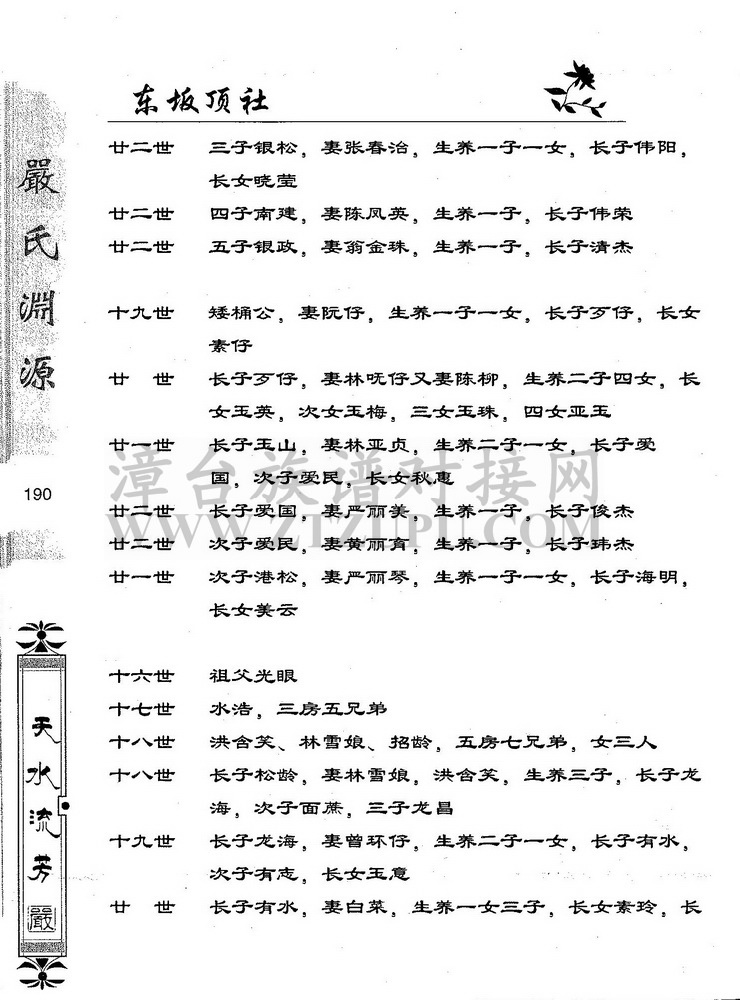 东坂顶社
嚴氏淵源
190
天水流芳
嚴
廿二世 三子银松，妻张春治，生养一子一女，长子伟阳，
长女晓莹
廿二世 四子南建，妻陈凤英，生养一子，长子伟荣
廿二世 五子银政，妻翁金珠，生养一子，长子清杰
十九世 矮桶公，妻阮仔，生养一子一女，长子歹仔，长女
素仔
廿 世 长子歹仔，妻林呒仔又妻陈柳，生养二子四女，长
女玉英，次女玉梅，三女玉珠，四女亚玉
廿一世 长子玉山，妻林亚贞，生养二子一女，长子爱
国，次子爱民，长女秋惠
廿二世 长子爱国，妻严丽美，生养一子，长子俊杰
廿二世 次子爱民，妻黄丽育，生养一子，长子玮杰
廿一世 次子港松，妻严丽琴，生养一子一女，长子海明，
长女美云
十六世 祖父光眼
十七世 水浩，三房五兄弟
十八世 洪含笑、林雪娘、招龄，五房七兄弟，女三人
十八世 长子松龄，妻林雪娘，洪含笑，生养三子，长子龙
海，次子面蔗，三子龙昌
十九世 长子龙海，妻曾环仔，生养二子一女，长子有水，
次子有志，长女玉意
廿 世 长子有水，妻白菜，生养一女三子，长女素玲，长
漳台族谱对接网
WWW.ZTZUPU.COM